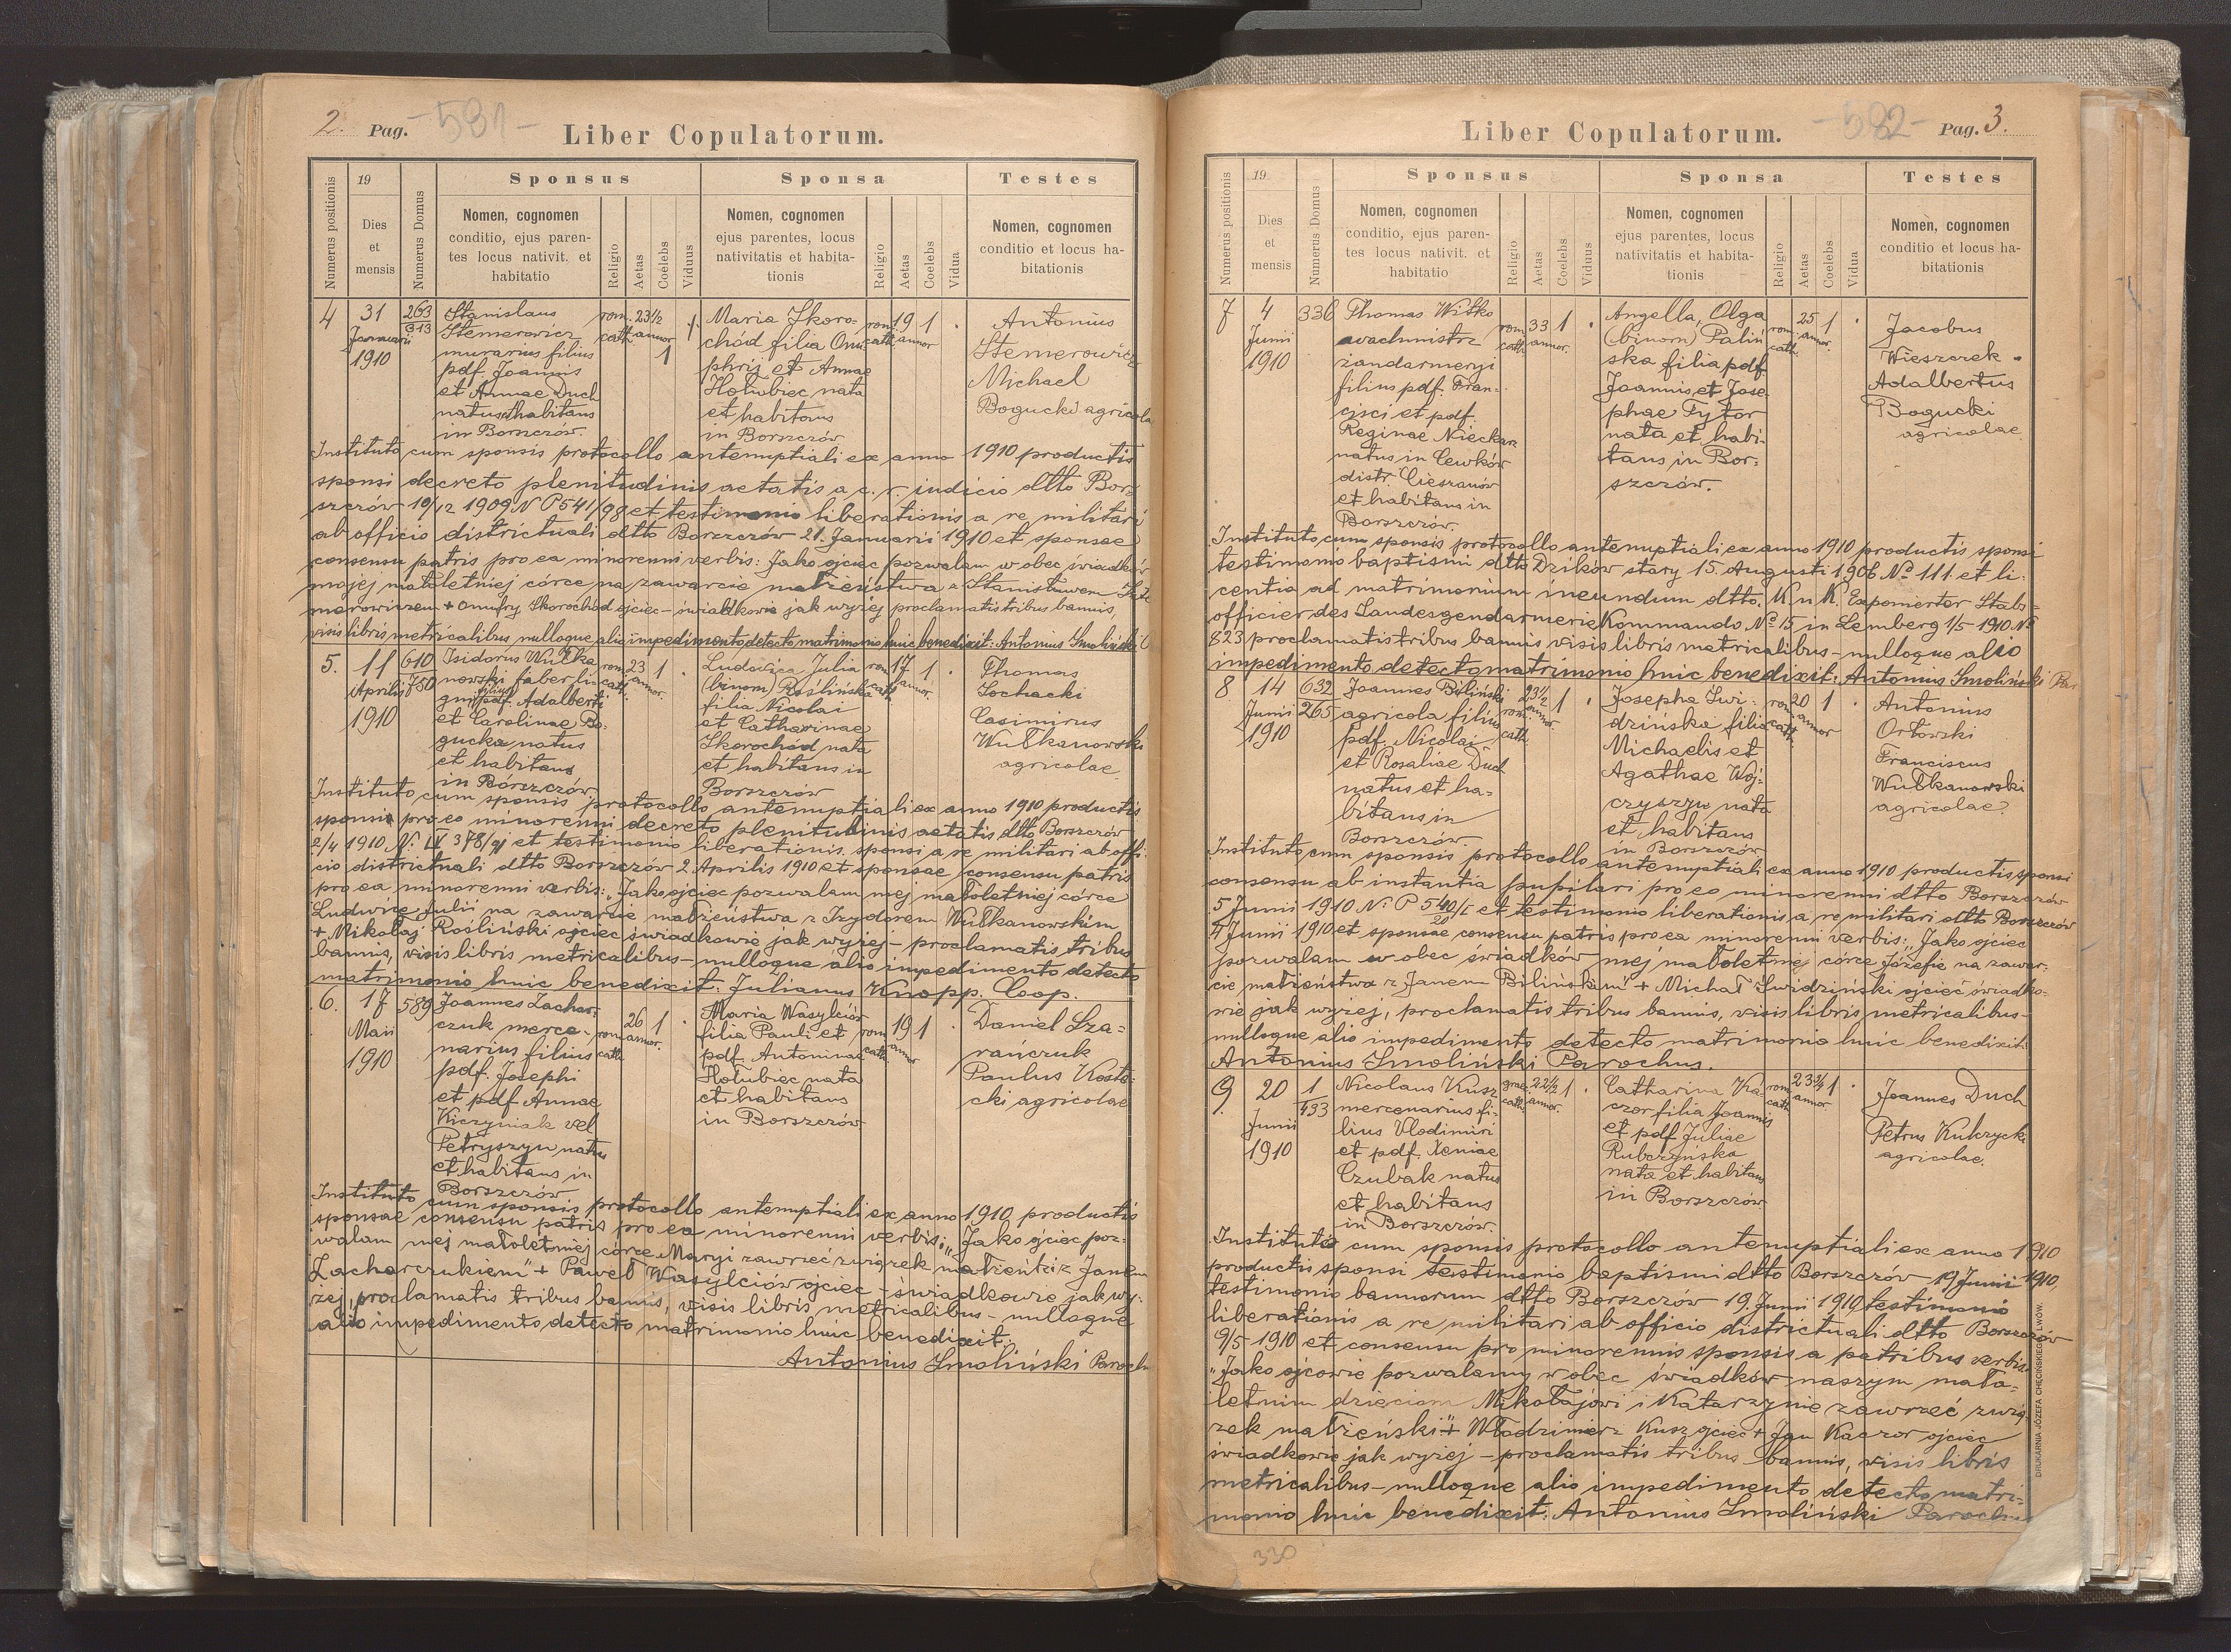 2. Pag. -581-
Liber Copulatorum.
Numerus positionis
19
Dies
et
mensis
Numerus Domus
Sponsus
Nomen, cognomen
conditio, ejus paren-
tes locus nativit. et
habitatio
Religio
Aetas
Coelebs
Viduus
Sponsa
Nomen, cognomen
ejus parentes, locus
nativitatis et habita-
tionis
Religio
Aetas
Coelebs
Vidua
Testes
Nomen, cognomen
conditio et locus ha-
bitationis
4
31
Januarii
1910
263
313
Stanislaus
Stemerowicz
murarius filius
pdf. Joannis
et Annae Duch
natus et habitans
in Borszczów.
rom.
cath.
23 1/2
annor
1
Maria Skoro-
chód filia Onu-
phrij et Annae
Hołubiec nata
et habitans
in Borszczów
rom.
cath.
19
annor
1
Antonius
Stemerowicz
Michael
Bogucki agricola
Instituto cum sponsis protocollo antenuptiali ex anno 1910 productis
sponsi decreto plenitudinis aetatis a c. r. judicio dtto Bor-
szczów 10/12 1909 N P 541/98 et testimonio liberationis a re militari
ab officio districtuali dtto Borszczów 21. Januarii 1910 et sponsae
consensu patris pro ea minorenni verbis: Jako ojciec pozwalam w obec świadków
mojej małoletniej córce na zawarcie małżeństwa z Stanisławem Ste
merowiczem + Onufry Skorochód ojciec - świadkowie jak wyżej proclamatis tribus bannis,
visis libris metricalibus, nulloque alio impedimento detecto matrimonio huic benedixit: Antonius Smoliński
5.
11
Aprilis
1910
610
750
Isidorus Wułka
nowski faber li-
gni filius pdf. Adalberti
et Carolinae Bo-
gucka natus
et habitans
in Borszczów
rom.
cath.
23
annor.
1
Ludovica Julia
(binom) Roślińska
filia Nicolai
et Catharinae
Skorochód nata
et habitans in
Borszczów
rom.
cath.
17
annor.
1
Thomas
Sochacki
Casimirus
Wułkanowski
agricolae.
Instituto cum sponsis protocollo antenuptiali ex anno 1910 productis
sponsi pro eo minorenni decreto plenitudinis aetatis dtto Borszczów
2/4 1910 N. LV 378/91 et testimonio liberationis sponsi a re militari ab offi
cio districtuali dtto Borszczów 2. Aprilis 1910 et sponsae consensu patris
pro ea minorenni verbis: "Jako ojciec pozwalam mej małoletniej córce
Ludwice Julii na zawarcie małżeństwa z Izydorem Wułkanowskim
+ Mikołaj Rośliński ojciec świadkowie jak wyżej - proclamatis tribus
bannis, visis libris metricalibus - nulloque alio impedimento detecto
matrimonio huic benedixit: Julianus Knopp. Coop.
6.
17
Maii
1910
589
Joannes Zachar-
czuk merce-
narius filius
pdf. Josephi
et pdf Annae
Kiczyniak vel
Petryszyn natus
et habitans in
Borszczów
rom
cath
26
annor.
1
Maria Wasylciów
filia Pauli et
pdf. Antoninae
Hołubiec nata
et habitans
in Borszczów
rom
cath
19
annor
1
Daniel Sza-
rańczuk
Paulus Kosto-
cki agricolae
Instituto cum sponsis protocollo antenuptiali ex anno 1910 productis
sponsae consensu patris pro ea minorenni verbis: "Jako ojciec poz-
walam mej małoletniej córce Maryi zawrzeć związek małżeński z Janem
Zacharczukiem" + Paweł Wasylciów ojciec - świadkowie jak wy-
żej, proclamatis tribus bannis, visis libris metricalibus - nulloque
alio impedimento detecto matrimonio huic benedixit:
Antonius Smoliński Paroch
-582- Pag. 3.
Liber Copulatorum.
Numerus positionis
19
Dies
et
mensis
Numerus Domus
Sponsus
Nomen, cognomen
conditio, ejus paren-
tes locus nativit. et
habitatio
Religio
Aetas
Coelebs
Viduus
Sponsa
Nomen, cognomen
ejus parentes, locus
nativitatis et habita-
tionis
Religio
Aetas
Coelebs
Vidua
Testes
Nomen, cognomen
conditio et locus ha-
bitationis
7
4
Junii
1910
336
Thomas Witko
wachmistrz
żandarmeryi
filius pdf. Fran-
cisci et pdf.
Reginae Nieckarz
natus in Cewków
distr. Cieszanów
et habitans in
Borszczów.
rom
cath.
33
annor.
1
Angella, Olga
(binom) Paliń
ska filia pdf
Joannis et Jose-
phae Fytor
nata et habi-
tans in Bor-
szczów.
rom
cath.
25
annor.
1
Jacobus
Wieszczek
Adalbertus
Bogucki
agricolae.
Instituto cum sponsis protocollo antenuptiali ex anno 1910 productis sponsi
testimonio baptismi dtto Dzików stary 15. Augusti 1906 No 111 et li-
centia ad matrimonium ineundum dtto. K. u K. Exponierter Stabs-
officier des Landesgendarmerie Kommando No 15 in Lemberg 1/5 1910 No
823 proclamatis tribus bannis visis libris metricalibus - nulloque alio
impedimento detecto matrimonio huic benedixit: Antonius Smoliński Par
8
14
Junii
1910
632
265
Joannes Biliński
agricola filius
pdf. Nicolai
et Rosaliae Duch
natus et ha-
bitans in
Borszczów.
23 1/2
annor
rom.
cath.
1
Josepha Swi-
dzińska filia
Michaelis et
Agathae Woj-
czyszyn nata
et habitans
in Borszczów
rom
cath.
20
annor
1
Antonius
Orłowski
Franciscus
Wułkanowski
agricolae
Instituto cum sponsis protocollo antenuptiali ex anno 1910 productis sponsi
consensu ab instantia pupilari pro eo minorenni dtto Borszczów
5 Junii 1910 N. P 540/20 et testimonio liberationis a re militari dtto Borszczów
4 Junii 1910 et sponsae consensu patris pro ea minorenni verbis: "Jako ojciec
pozwalam w obec świadków mej małoletniej córce Józefie na zawar-
cie małżeństwa z Janem Bilińskim" + Michał Swidziński ojciec świadko-
wie jak wyżej, proclamatis tribus bannis, visis libris metricalibus -
nulloque alio impedimento detecto matrimonio huic benedixit:
Antonius Smoliński Parochus.
9.
20
Junii
1910
1
433
Nicolaus Kusz
mercenarius fi-
lius Vlodimiri
et pdf. Xeniae
Czubak natus
et habitans
in Borszczów.
grae.
cath.
22 1/2
annor.
1
Catharina Ka-
czor filia Joannis
et pdf Juliae
Rubczynska
nata et habitans
in Borszczów
rom
cath
23 3/4
annor
1
Joannes Duch
Petrus Kulczycki
agricolae.
Instituto cum sponsis protocollo antenuptiali ex anno 1910
productis sponsi testimonio baptismi dtto Borszczów 19 Junii 1910,
testimonio bannorum dtto Borszczów 19. Junii 1910, testimonio
liberationis a re militari ab officio districtuali dtto Borszczów
9/5 1910 et consensu pro minorennis sponsis a patribus verbis:
"Jako ojcowie pozwalamy w obec świadków naszym mało-
letnim dzieciom Mikołajowi i Katarzynie zawrzeć zwią-
zek małżeński" + Włodzimierz Kusz ojciec + Jan Kaczor ojciec
świadkowie jak wyżej - proclamatis tribus bannis, visis libris
metricalibus - nulloque alio impedimento detecto matri-
monio huic benedixit: Antonius Smoliński Parochus
DRUKARNIA JÓZEFA CHĘCIŃSKIEGO LWÓW.
330